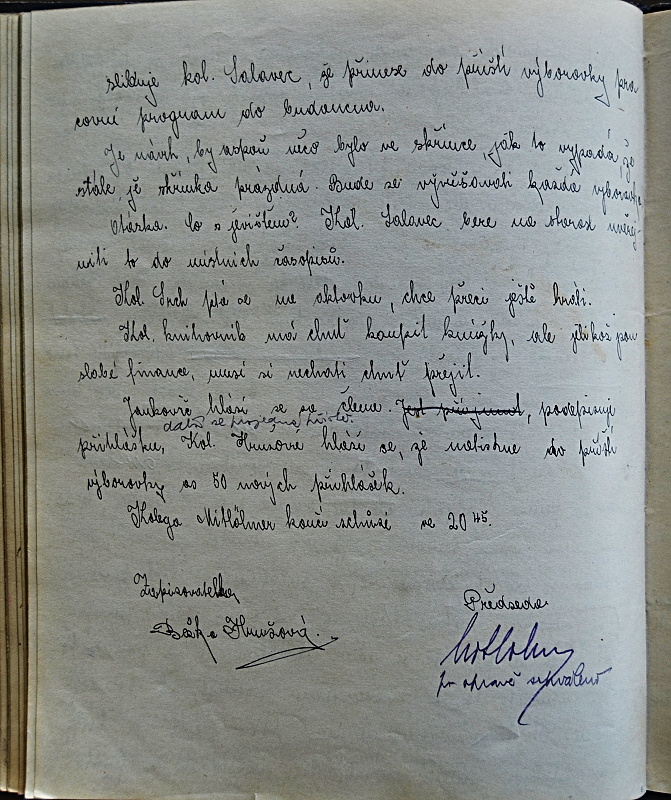 slibuje kol. Salavec, že přinese do příští výborovky pra
covní program do budoucna.
Je návrh, by aspoň něco bylo ve skřínce, jak to vypadá, že
stále je skřínka prázdná. Bude se vyvěšovati každá výborovka
Otázka. Co s jevištěm? Kol. Salavec bere na starost uveřej-
niti to do místních časopisů.
Kol. Srch ptá se na aktovku, chce přeci ještě hráti.
Kol. knihovník má chuť koupit knížky, ale jelikož jsou
slabé finance, musí si nechati chuť přejít.
Jankovič hlásí se za člena. Jest přijmut, podepisuje
další se projedná příště.
přihlášku. Kol. Hrušová hlásí se, že natiskne do příští
výborovky as 50 nových přihlášek.
Kolega Mitlöhner končí schůzi ve 20 45.
Zapisovatelka
Předseda
Hrušová.
po opravě schváleno